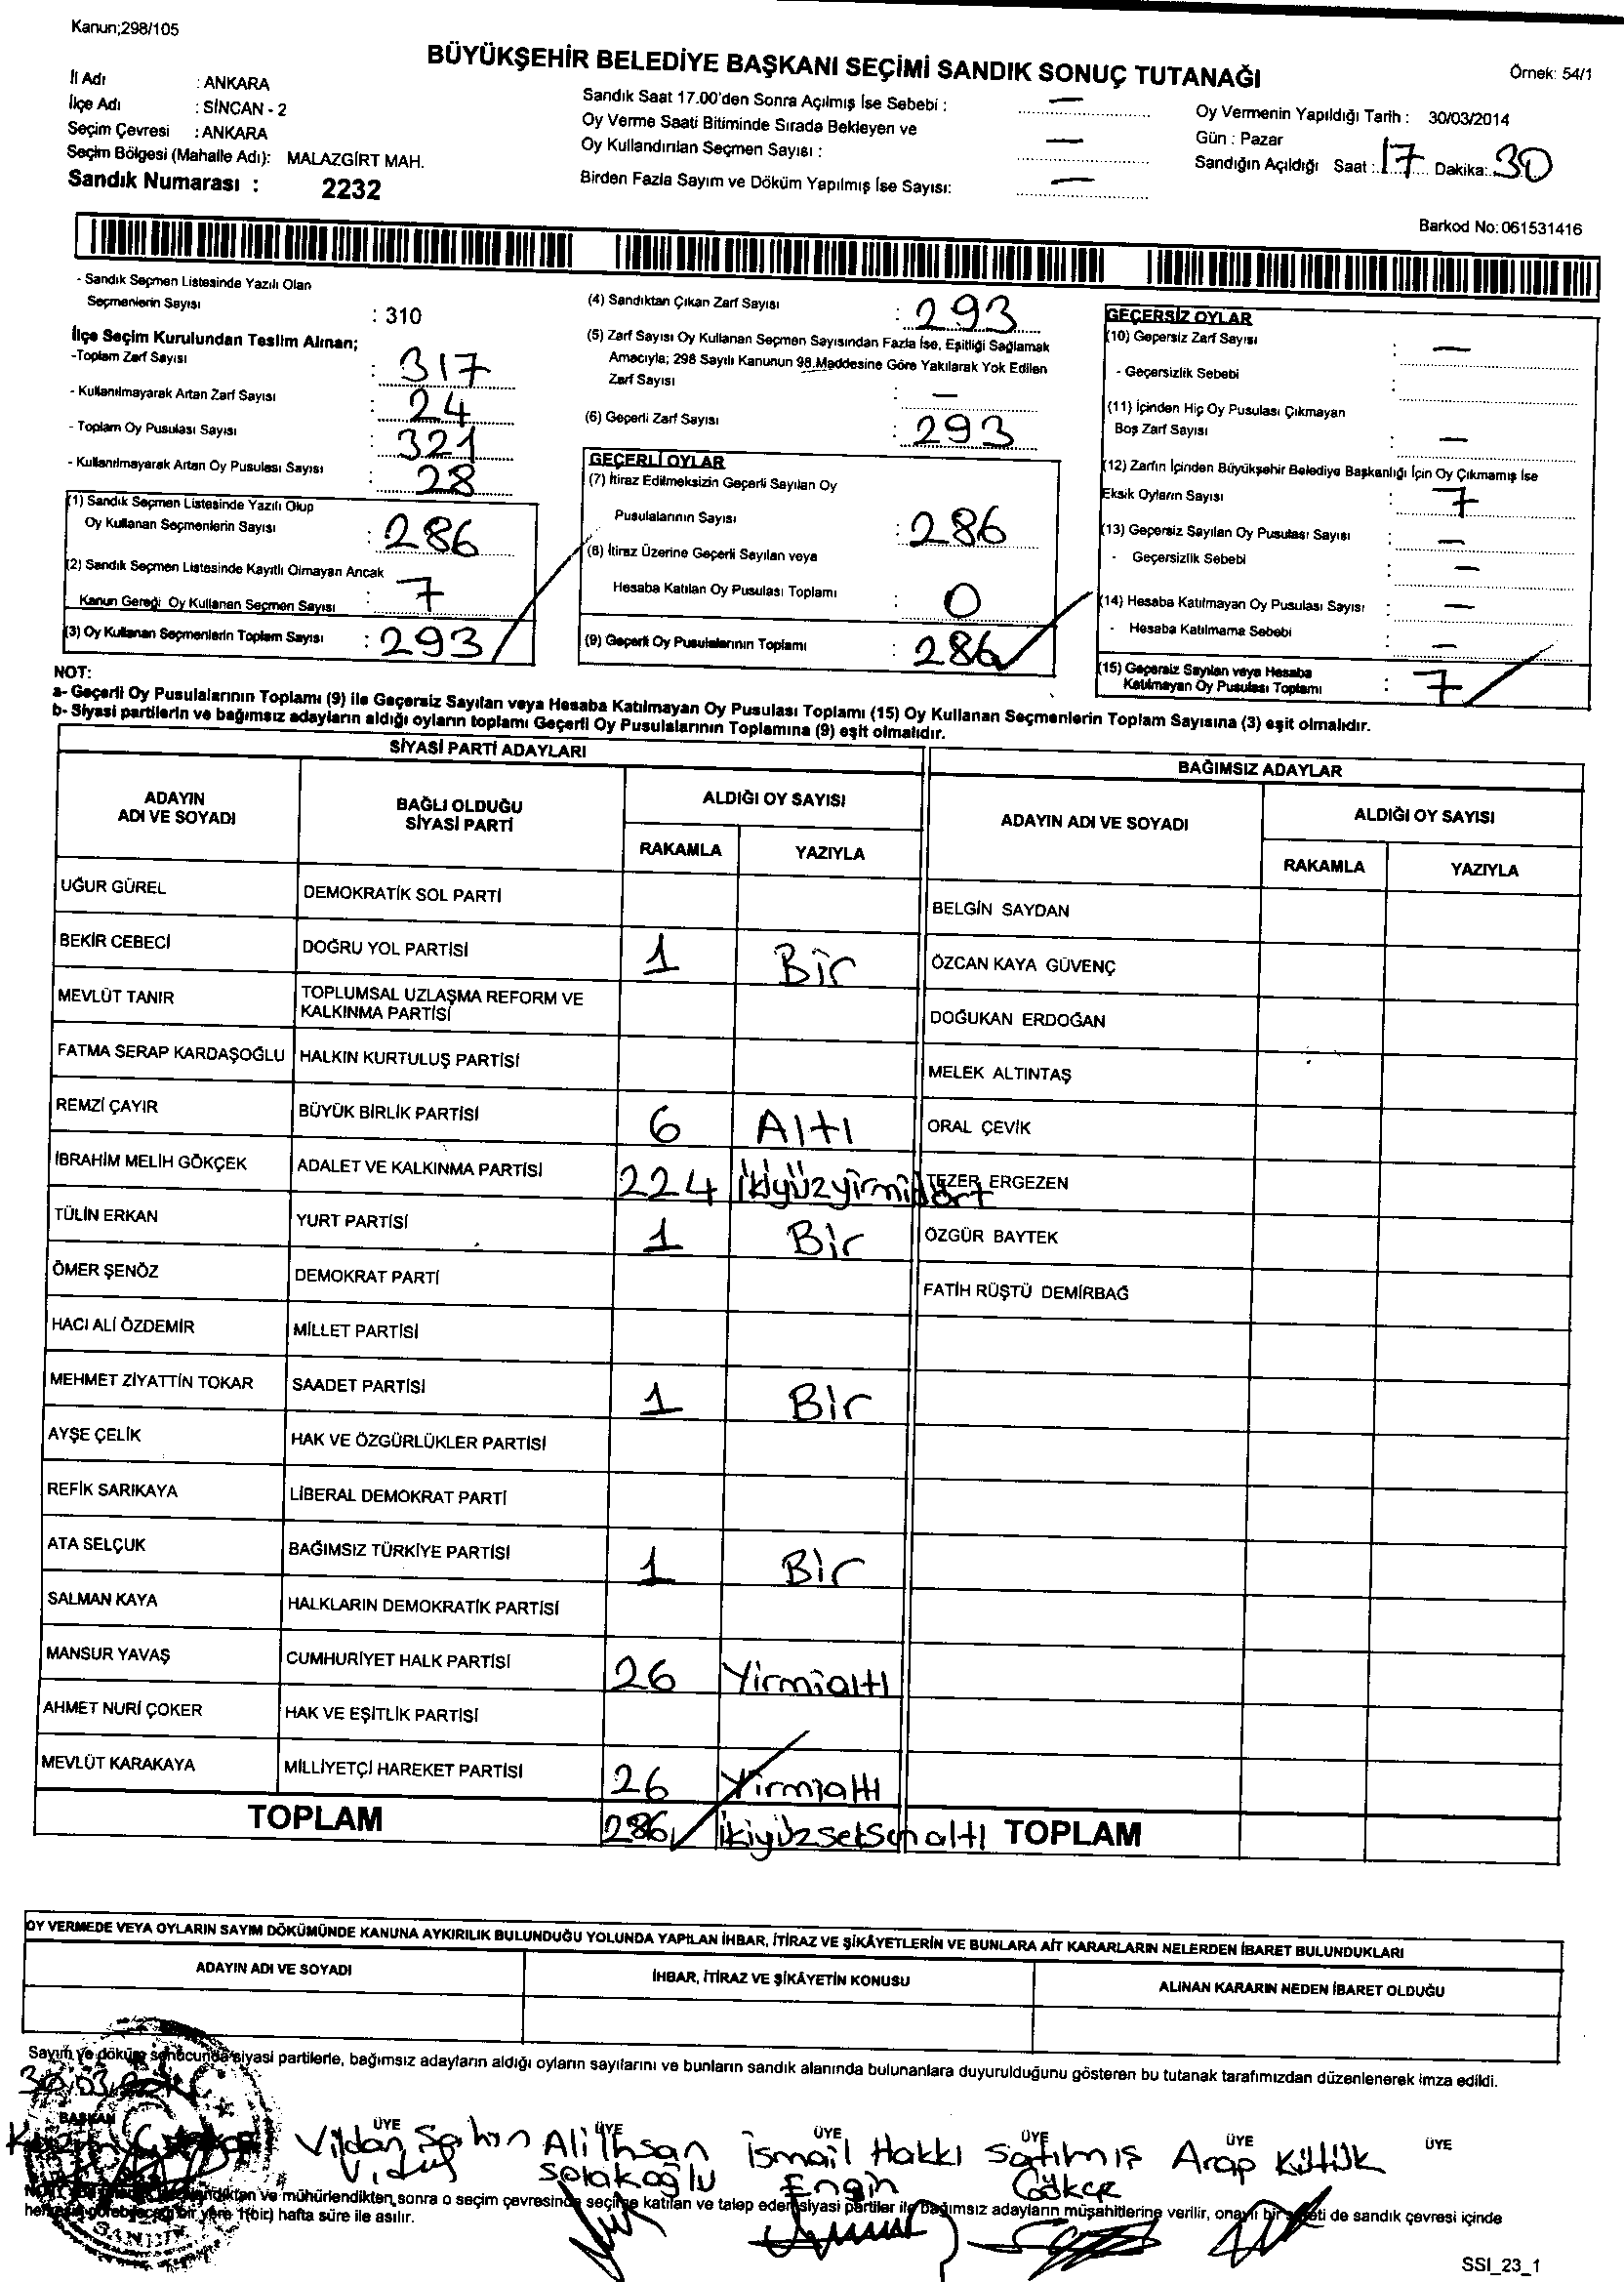 Kanun;298/105
BÜYÜKŞEHİR BELEDİYE BAŞKANI SEÇİMİ SANDIK SONUÇ TUTANAĞI
Örnek: 54/1
İl Adı : ANKARA
İlçe Adı : SİNCAN - 2
Seçim Çevresi : ANKARA
Seçim Bölgesi (Mahalle Adı): MALAZGİRT MAH.
Sandık Numarası : 2232
Sandık Saat 17.00'den Sonra Açılmış İse Sebebi : —
Oy Verme Saati Bitiminde Sırada Bekleyen ve
Oy Kullandırılan Seçmen Sayısı : —
Birden Fazla Sayım ve Döküm Yapılmış İse Sayısı: —
Oy Vermenin Yapıldığı Tarih : 30/03/2014
Gün : Pazar
Sandığın Açıldığı Saat : 17 Dakika: 30
Barkod No: 061531416
- Sandık Seçmen Listesinde Yazılı Olan
Seçmenlerin Sayısı : 310
İlçe Seçim Kurulundan Teslim Alınan;
-Toplam Zarf Sayısı : 317
- Kullanılmayarak Artan Zarf Sayısı : 24
- Toplam Oy Pusulası Sayısı : 321
- Kullanılmayarak Artan Oy Pusulası Sayısı : 28
(1) Sandık Seçmen Listesinde Yazılı Olup
Oy Kullanan Seçmenlerin Sayısı : 286
(2) Sandık Seçmen Listesinde Kayıtlı Olmayan Ancak
Kanun Gereği Oy Kullanan Seçmen Sayısı : 7
(3) Oy Kullanan Seçmenlerin Toplam Sayısı : 293
(4) Sandıktan Çıkan Zarf Sayısı : 293
(5) Zarf Sayısı Oy Kullanan Seçmen Sayısından Fazla İse, Eşitliği Sağlamak
Amacıyla; 298 Sayılı Kanunun 98.Maddesine Göre Yakılarak Yok Edilen
Zarf Sayısı : —
(6) Geçerli Zarf Sayısı : 293
GEÇERLİ OYLAR
(7) İtiraz Edilmeksizin Geçerli Sayılan Oy
Pusulalarının Sayısı : 286
(8) İtiraz Üzerine Geçerli Sayılan veya
Hesaba Katılan Oy Pusulası Toplamı : 0
(9) Geçerli Oy Pusulalarının Toplamı : 286
GEÇERSİZ OYLAR
(10) Geçersiz Zarf Sayısı : —
- Geçersizlik Sebebi :
(11) İçinden Hiç Oy Pusulası Çıkmayan
Boş Zarf Sayısı : —
(12) Zarfın İçinden Büyükşehir Belediye Başkanlığı İçin Oy Çıkmamış İse
Eksik Oyların Sayısı : 7
(13) Geçersiz Sayılan Oy Pusulası Sayısı : —
- Geçersizlik Sebebi : —
(14) Hesaba Katılmayan Oy Pusulası Sayısı : —
- Hesaba Katılmama Sebebi : —
(15) Geçersiz Sayılan veya Hesaba
Katılmayan Oy Pusulası Toplamı : 7
NOT:
a- Geçerli Oy Pusulalarının Toplamı (9) ile Geçersiz Sayılan veya Hesaba Katılmayan Oy Pusulası Toplamı (15) Oy Kullanan Seçmenlerin Toplam Sayısına (3) eşit olmalıdır.
b- Siyasi partilerin ve bağımsız adayların aldığı oyların toplamı Geçerli Oy Pusulalarının Toplamına (9) eşit olmalıdır.
SİYASİ PARTİ ADAYLARI
ADAYIN ADI VE SOYADI BAĞLI OLDUĞU SİYASİ PARTİ ALDIĞI OY SAYISI
RAKAMLA YAZIYLA
UĞUR GÜREL DEMOKRATİK SOL PARTİ
BEKİR CEBECİ DOĞRU YOL PARTİSİ 1 Bir
MEVLÜT TANIR TOPLUMSAL UZLAŞMA REFORM VE KALKINMA PARTİSİ
FATMA SERAP KARDAŞOĞLU HALKIN KURTULUŞ PARTİSİ
REMZİ ÇAYIR BÜYÜK BİRLİK PARTİSİ 6 Altı
İBRAHİM MELİH GÖKÇEK ADALET VE KALKINMA PARTİSİ 224 ikiyüzyirmidört
TÜLİN ERKAN YURT PARTİSİ 1 Bir
ÖMER ŞENÖZ DEMOKRAT PARTİ
HACI ALİ ÖZDEMİR MİLLET PARTİSİ
MEHMET ZİYATTİN TOKAR SAADET PARTİSİ 1 Bir
AYŞE ÇELİK HAK VE ÖZGÜRLÜKLER PARTİSİ
REFİK SARIKAYA LİBERAL DEMOKRAT PARTİ
ATA SELÇUK BAĞIMSIZ TÜRKİYE PARTİSİ 1 Bir
SALMAN KAYA HALKLARIN DEMOKRATİK PARTİSİ
MANSUR YAVAŞ CUMHURİYET HALK PARTİSİ 26 Yirmialtı
AHMET NURİ ÇOKER HAK VE EŞİTLİK PARTİSİ
MEVLÜT KARAKAYA MİLLİYETÇİ HAREKET PARTİSİ 26 Yirmialtı
TOPLAM 286 ikiyüzseksenaltı
BAĞIMSIZ ADAYLAR
ADAYIN ADI VE SOYADI ALDIĞI OY SAYISI
RAKAMLA YAZIYLA
BELGİN SAYDAN
ÖZCAN KAYA GÜVENÇ
DOĞUKAN ERDOĞAN
MELEK ALTINTAŞ
ORAL ÇEVİK
TEZER ERGEZEN
ÖZGÜR BAYTEK
FATİH RÜŞTÜ DEMİRBAĞ
TOPLAM
OY VERMEDE VEYA OYLARIN SAYIM DÖKÜMÜNDE KANUNA AYKIRILIK BULUNDUĞU YOLUNDA YAPILAN İHBAR, İTİRAZ VE ŞİKÂYETLERİN VE BUNLARA AİT KARARLARIN NELERDEN İBARET BULUNDUKLARI
ADAYIN ADI VE SOYADI İHBAR, İTİRAZ VE ŞİKÂYETİN KONUSU ALINAN KARARIN NEDEN İBARET OLDUĞU
Sayım ve döküm sonucunda siyasi partilerle, bağımsız adayların aldığı oyların sayılarını ve bunların sandık alanında bulunanlara duyurulduğunu gösteren bu tutanak tarafımızdan düzenlenerek imza edildi.
BAŞKAN ÜYE ÜYE ÜYE ÜYE ÜYE ÜYE
Vildan Şahin Ali İhsan İsmail Hakkı Satılmış Arap Kütük
Solakoğlu Engin Gökçe
ve mühürlendikten sonra o seçim çevresinde seçime katılan ve talep eden siyasi partiler ile bağımsız adayların müşahitlerine verilir, onaylı bir sureti de sandık çevresi içinde
herkesin görebileceği bir yere 1(bir) hafta süre ile asılır.
SANDIK
SSI_23_1